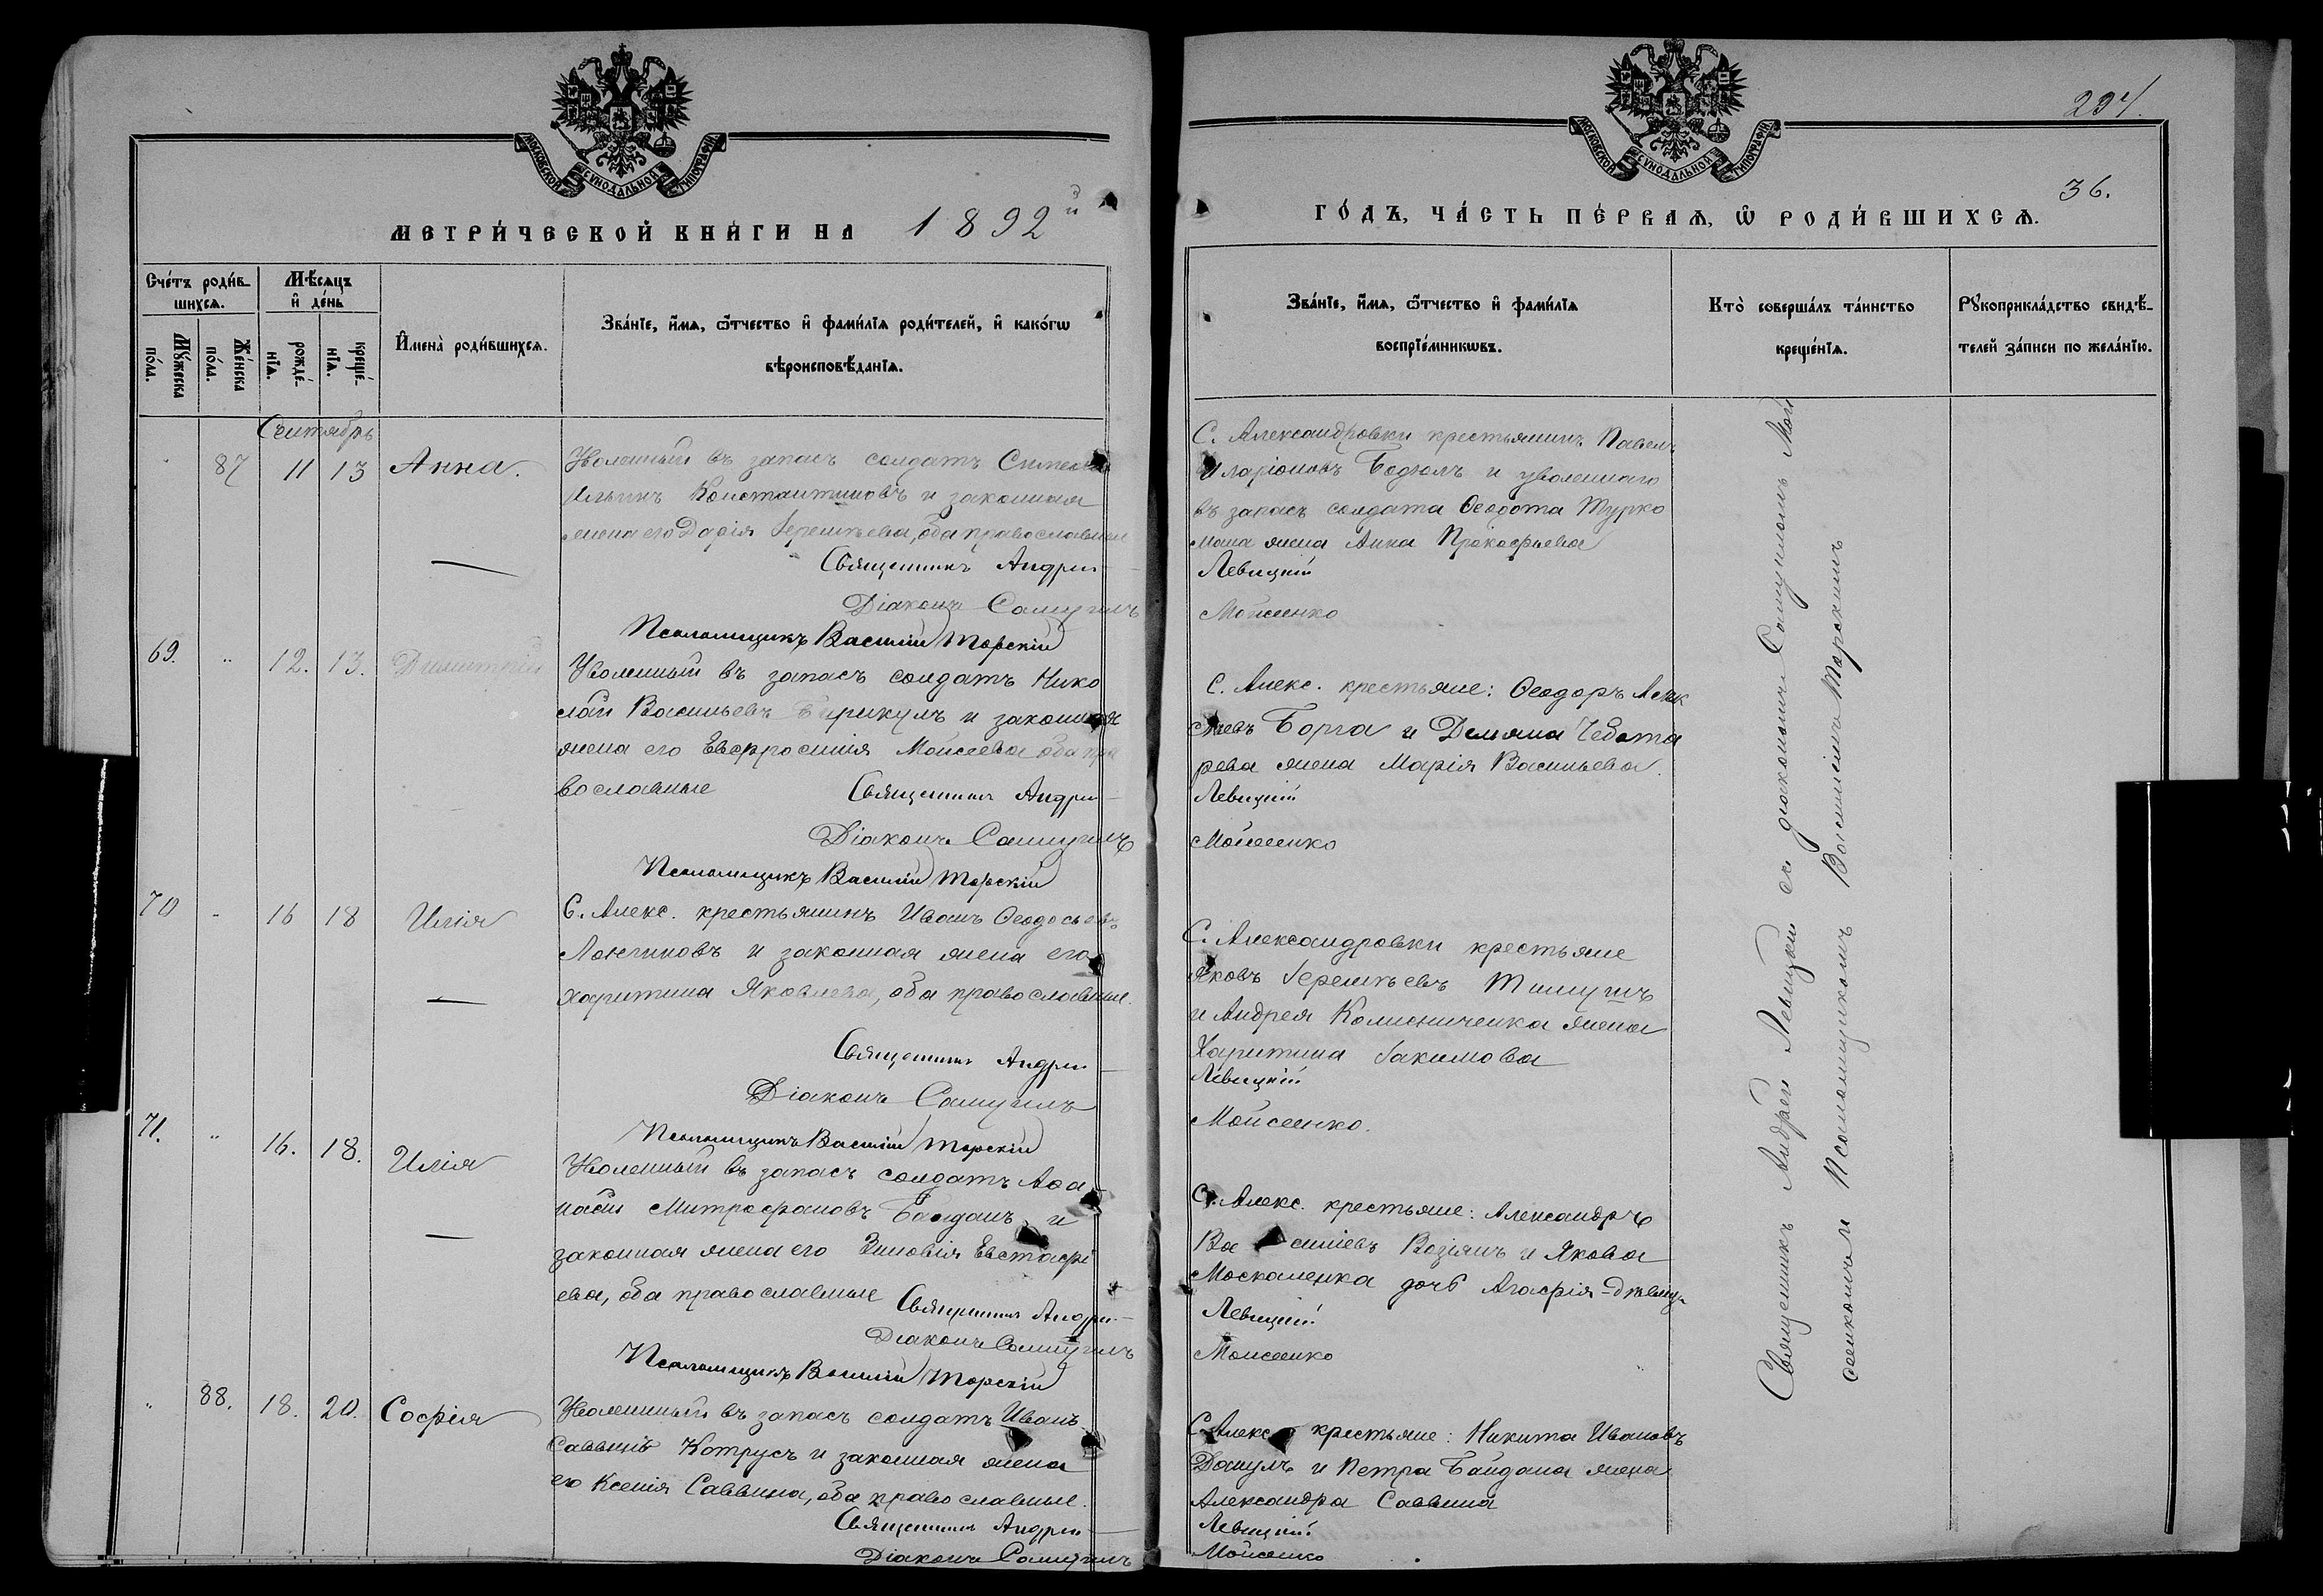 МОСКОВСКОЙ СУНОДАЛЬНОЙ ТИПОГРАФІИ
МЕТРИ́ЧЕСКОЙ КНИ́ГИ НА 1892й
Сче́тъ роди́в-
шихсѧ.
Мѣ́сѧцъ
и҆ де́нь
Мꙋ́жеска
по́ла.
Же́нска
по́ла.
рожде́-
нїѧ.
креще́-
нїѧ.
И҆мена̀ роди́вшихсѧ.
Зва́нїе, и҆́мѧ, ѻ҆́тчество и҆ фами́лїѧ роди́телей, и҆ како́гѡ
вѣроисповѣ́данїѧ.
Сентябрь
87 11 13 Анна.
Уволенный въ запасъ солдатъ Симеонъ
Ильинъ Константиновъ и законная
жена его Дарія Іереміева, оба православные
Священникъ Андрей
Діаконъ Самуилъ
Псаломщикъ Василій Торскій
69. " 12. 13. Димитрій
Уволенный въ запасъ солдатъ Нико
лай Васильевъ и законная
жена его Евфросинія Моисеева оба пра
вославные Священникъ Андрей
Діаконъ Самуилъ
Псаломщикъ Василій Торскій
70 " 16 18 Илія
С. Алекс. крестьянинъ Иванъ Ѳеодосьевъ
Лонгиновъ и законная жена его
Харитина Яковлева, оба православные.
Священникъ Андрей
Діаконъ Самуилъ
Псаломщикъ Василій Торскій
71. " 16. 18. Илія
Уволенный въ запасъ солдатъ Аѳа
насій Митрофановъ Байданъ и
законная жена его Зиновія Евстафі
ева, оба православные Священникъ Андрей
Діаконъ Самуилъ
Псаломщикъ Василій Торскій
" 88. 18. 20. Софія
Уволенный въ запасъ солдатъ Иванъ
Саввинъ Котрусъ и законная жена
его Ксенія Саввина, оба православные.
Священникъ Андрей
Діаконъ Самуилъ
МОСКОВСКОЙ СУНОДАЛЬНОЙ ТИПОГРАФІИ
297.
36.
ГО́ДЪ, ЧА́СТЬ ПЕ́РВАѦ, Ѡ҆ РОДИ́ВШИХСѦ.
Зва́нїе, и҆́мѧ, ѻ҆́тчество и҆ фами́лїѧ
воспрїе́мникѡвъ.
Кто̀ соверша́лъ та́инство
креще́нїѧ.
Рꙋкоприкла́дство свидѣ́-
телей за́писи по жела́нїю.
С. Александровки крестьянинъ Павелъ
Иларіоновъ Бодюлъ и уволеннаго
въ запасъ солдата Ѳеодота Турко
мана жена Анна Прокофьева
Левицкій
Мойсеенко
С. Алекс. крестьяне: Ѳеодоръ Алек
сѣевъ Борга и Демяна Чебота
рева жена Марія Васильева.
Левицкій
Мойсеенко
С. Александровки крестьяне
Яковъ Іереміевъ
и Андрея Колисниченка жена
Харитина Іакимова
Левицкій
Мойсеенко.
С. Алекс. крестьяне: Александръ
Василіевъ Возіянъ и Якова
Москаленка дочь Агафія-дѣвица
Левицкій
Мойсеенко
С. Алекс. крестьяне: Никита Ивановъ
Донулъ и Петра Байдана жена
Александра Саввина
Левицкій
Мойсеенко
Священникъ Андрей Левицкій съ діакономъ Самуиломъ Мой
сеенкомъ и Псаломщикомъ Василіемъ Торскимъ